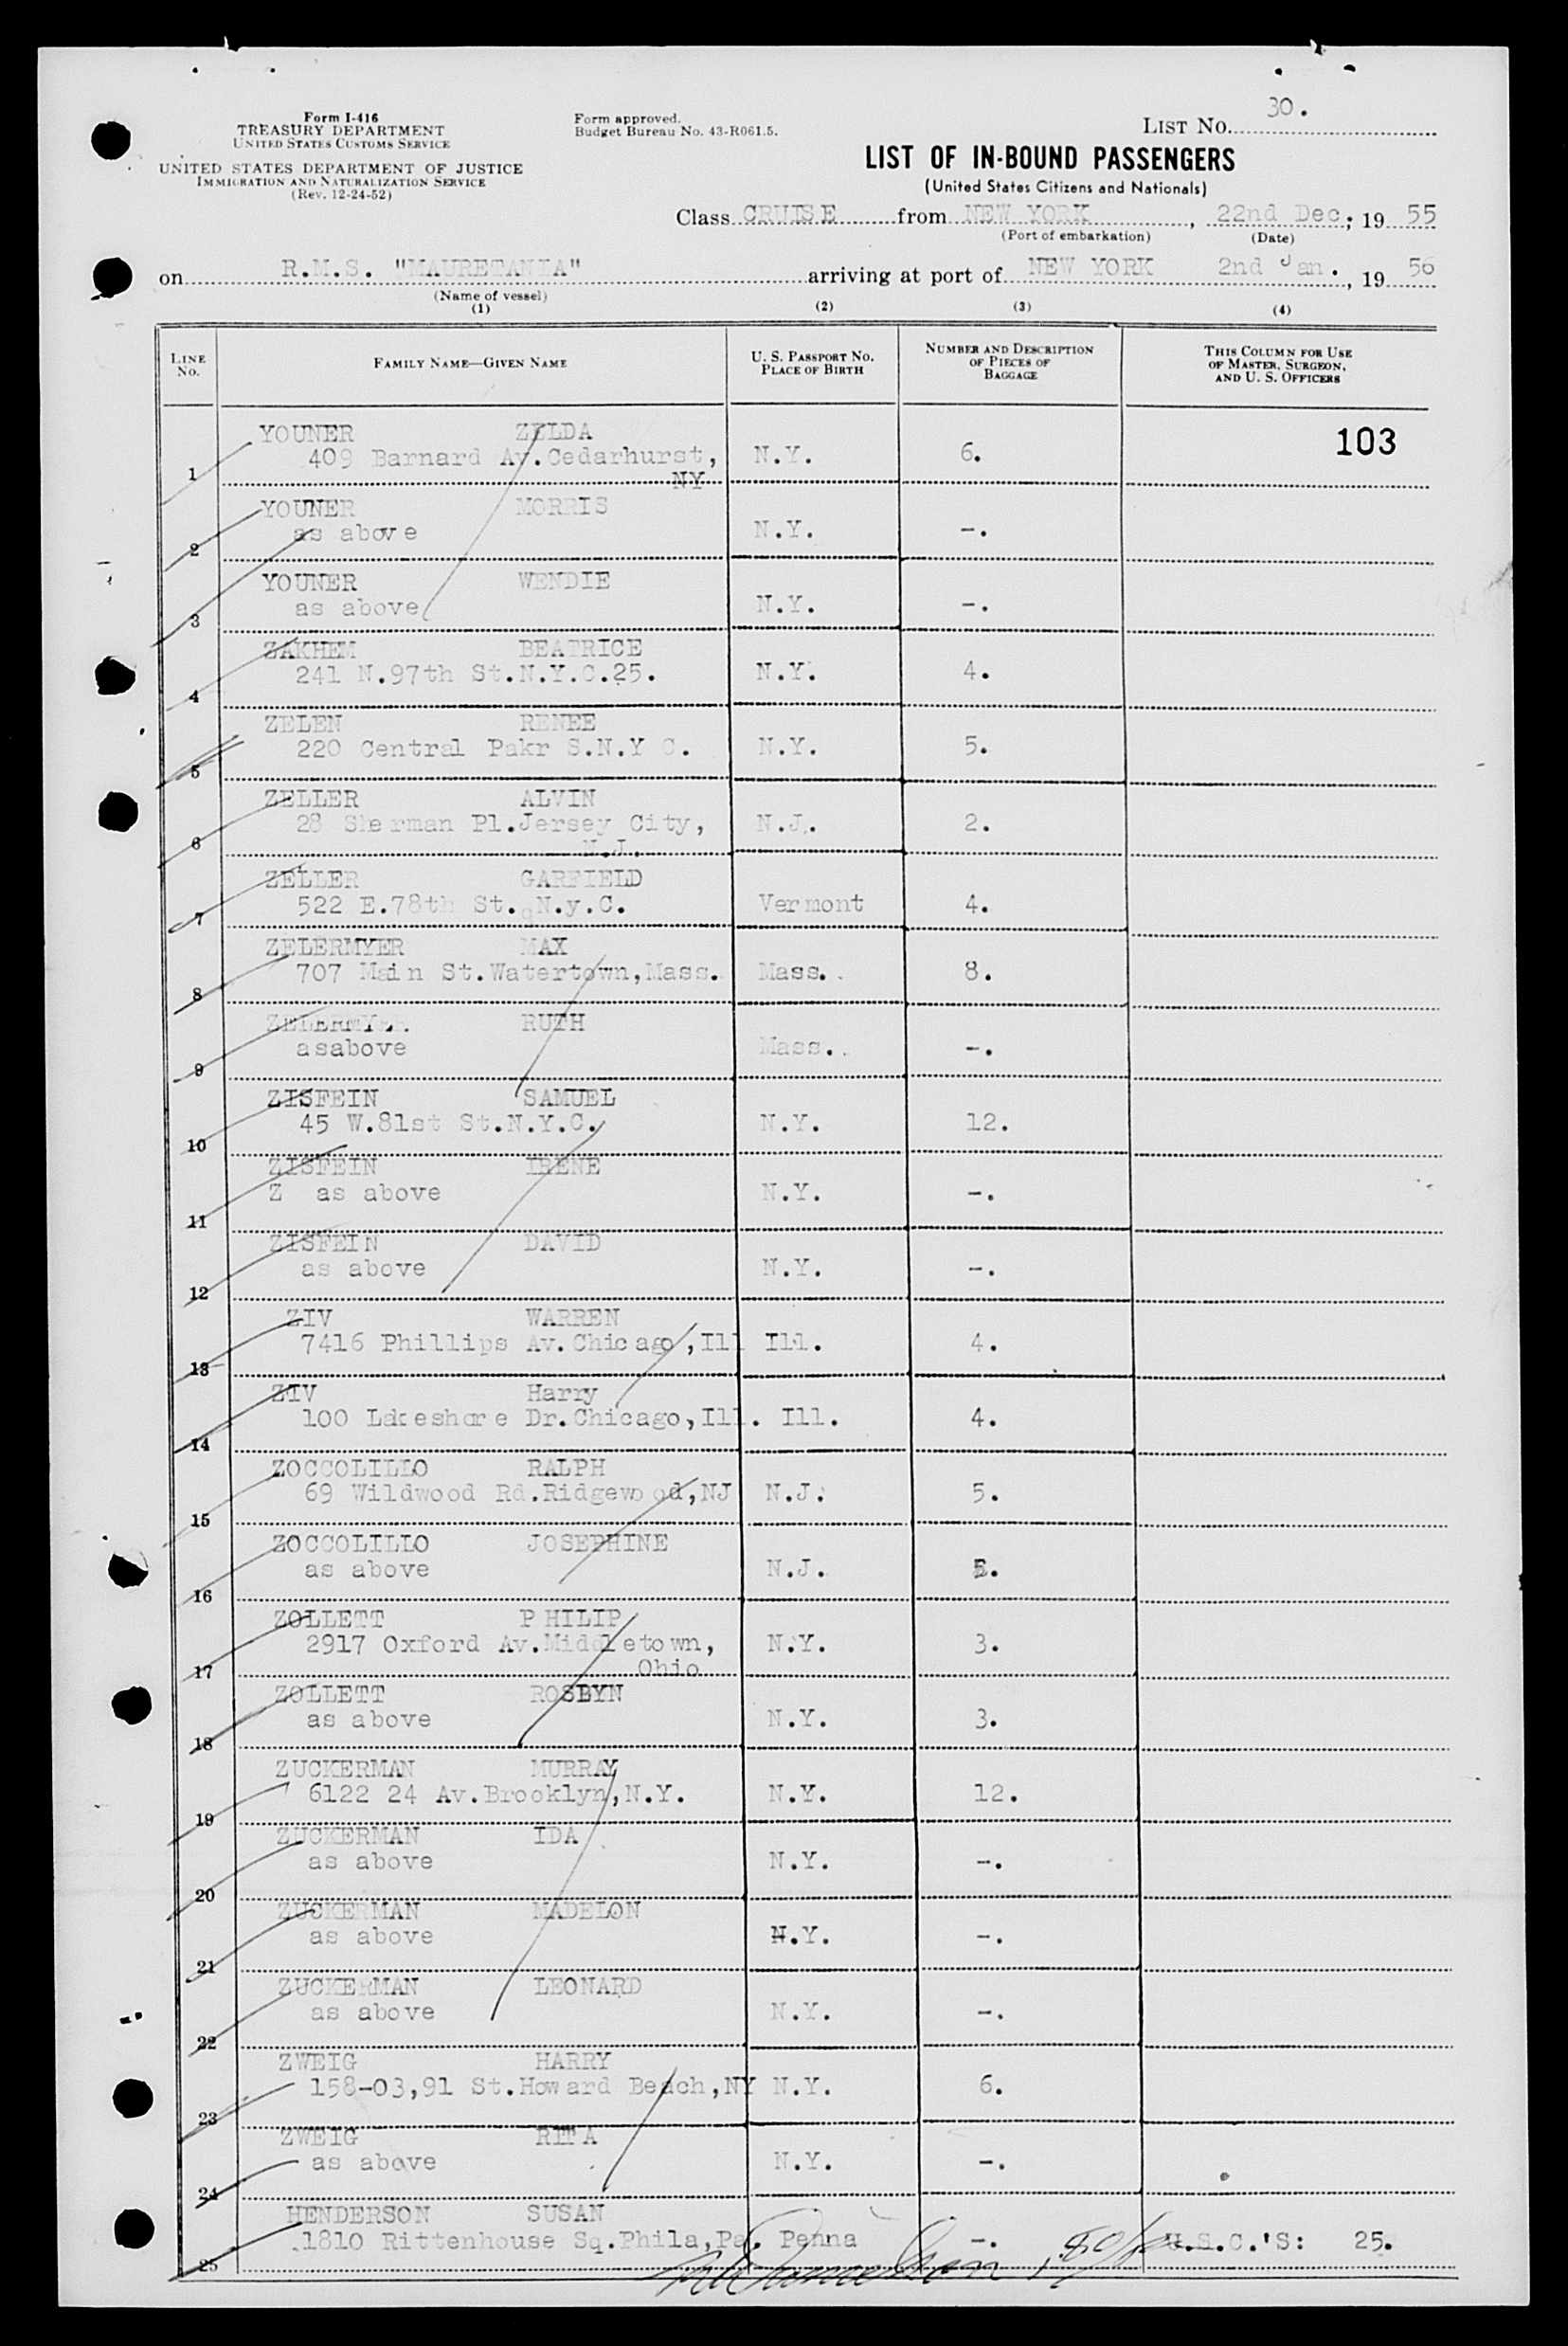 Form I-416
TREASURY DEPARTMENT
UNITED STATES CUSTOMS SERVICE
UNITED STATES DEPARTMENT OF JUSTICE
IMMIGRATION AND NATURALIZATION SERVICE
(Rev. 12-24-52)
Form approved.
Budget Bureau No. 43-R061.5.
LIST No. 30.
LIST OF IN-BOUND PASSENGERS
(United States Citizens and Nationals)
Class CRUISE from NEW YORK, 22nd Dec; 19 55
(Port of embarkation) (Date)
on R.M.S. "MAURETANIA" arriving at port of NEW YORK 2nd Jan., 19 56
(Name of vessel)
(1) (2) (3) (4)
LINE No. FAMILY NAME—GIVEN NAME U. S. PASSPORT NO. PLACE OF BIRTH NUMBER AND DESCRIPTION OF PIECES OF BAGGAGE THIS COLUMN FOR USE OF MASTER, SURGEON, AND U. S. OFFICERS
103
YOUNER ZELDA
1 409 Barnard Av.Cedarhurst, N.Y. 6.
NY
YOUNER MORRIS
2 as above N.Y. -.
YOUNER WENDIE
3 as above N.Y. -.
ZAKHEM BEATRICE
4 241 N.97th St.N.Y.C.25. N.Y. 4.
ZELEN RENEE
5 220 Central Pakr S.N.Y C. N.Y. 5.
ZELLER ALVIN
6 28 Sherman Pl.Jersey City, N.J. 2.
N.J.
ZELLER GARFIELD
7 522 E.78th St. N.y.C. Vermont 4.
ZELERMYER MAX
8 707 Main St.Watertown,Mass. Mass. 8.
ZELERMYER RUTH
9 asabove Mass. -.
ZISFEIN SAMUEL
10 45 W.81st St.N.Y.C. N.Y. 12.
ZISFEIN IRENE
11 Z as above N.Y. -.
ZISFEIN DAVID
12 as above N.Y. -.
ZIV WARREN
13 7416 Phillips Av.Chicago,Ill Ill. 4.
ZIV Harry
14 100 Lakeshore Dr.Chicago,Ill. Ill. 4.
ZOCCOLILLO RALPH
15 69 Wildwood Rd.Ridgewood,NJ N.J. 5.
ZOCCOLILLO JOSEPHINE
16 as above N.J.
ZOLLETT PHILIP
17 2917 Oxford Av.Middletown, N.Y. 3.
Ohio
ZOLLETT ROSBYN
18 as above N.Y. 3.
ZUCKERMAN MURRAY
19 6122 24 Av.Brooklyn,N.Y. N.Y. 12.
ZUCKERMAN IDA
20 as above N.Y. -.
ZUCKERMAN MADELON
21 as above N.Y. -.
ZUCKERMAN LEONARD
22 as above N.Y. -.
ZWEIG HARRY
23 158-03,91 St.Howard Beach,NY N.Y. 6.
ZWEIG RITA
24 as above N.Y. -.
HENDERSON SUSAN
25 1810 Rittenhouse Sq.Phila,Pa. Penna -. U.S.C.'S: 25.